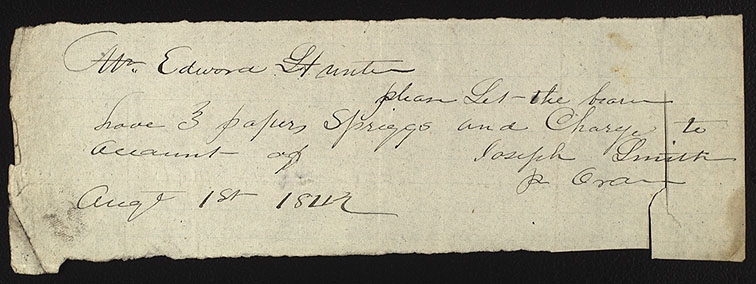 Mr. Edward Hunter
please Let the bearer
have 3 papers Spriggs and Charge to
account of Joseph Smith
p Oran
Augt 1st 1842